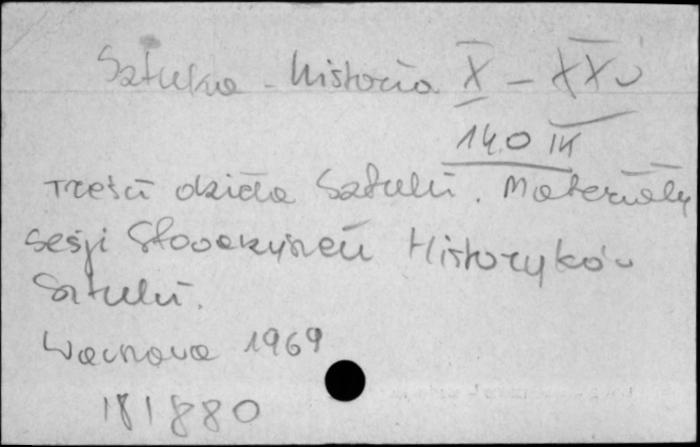 Sztuka - historia X - XX w
140 IK
Treści dzieła Sztuki. Materiały
sesji Stowarzyszeń Historyków
Sztuki.
Warszawa 1969
181880